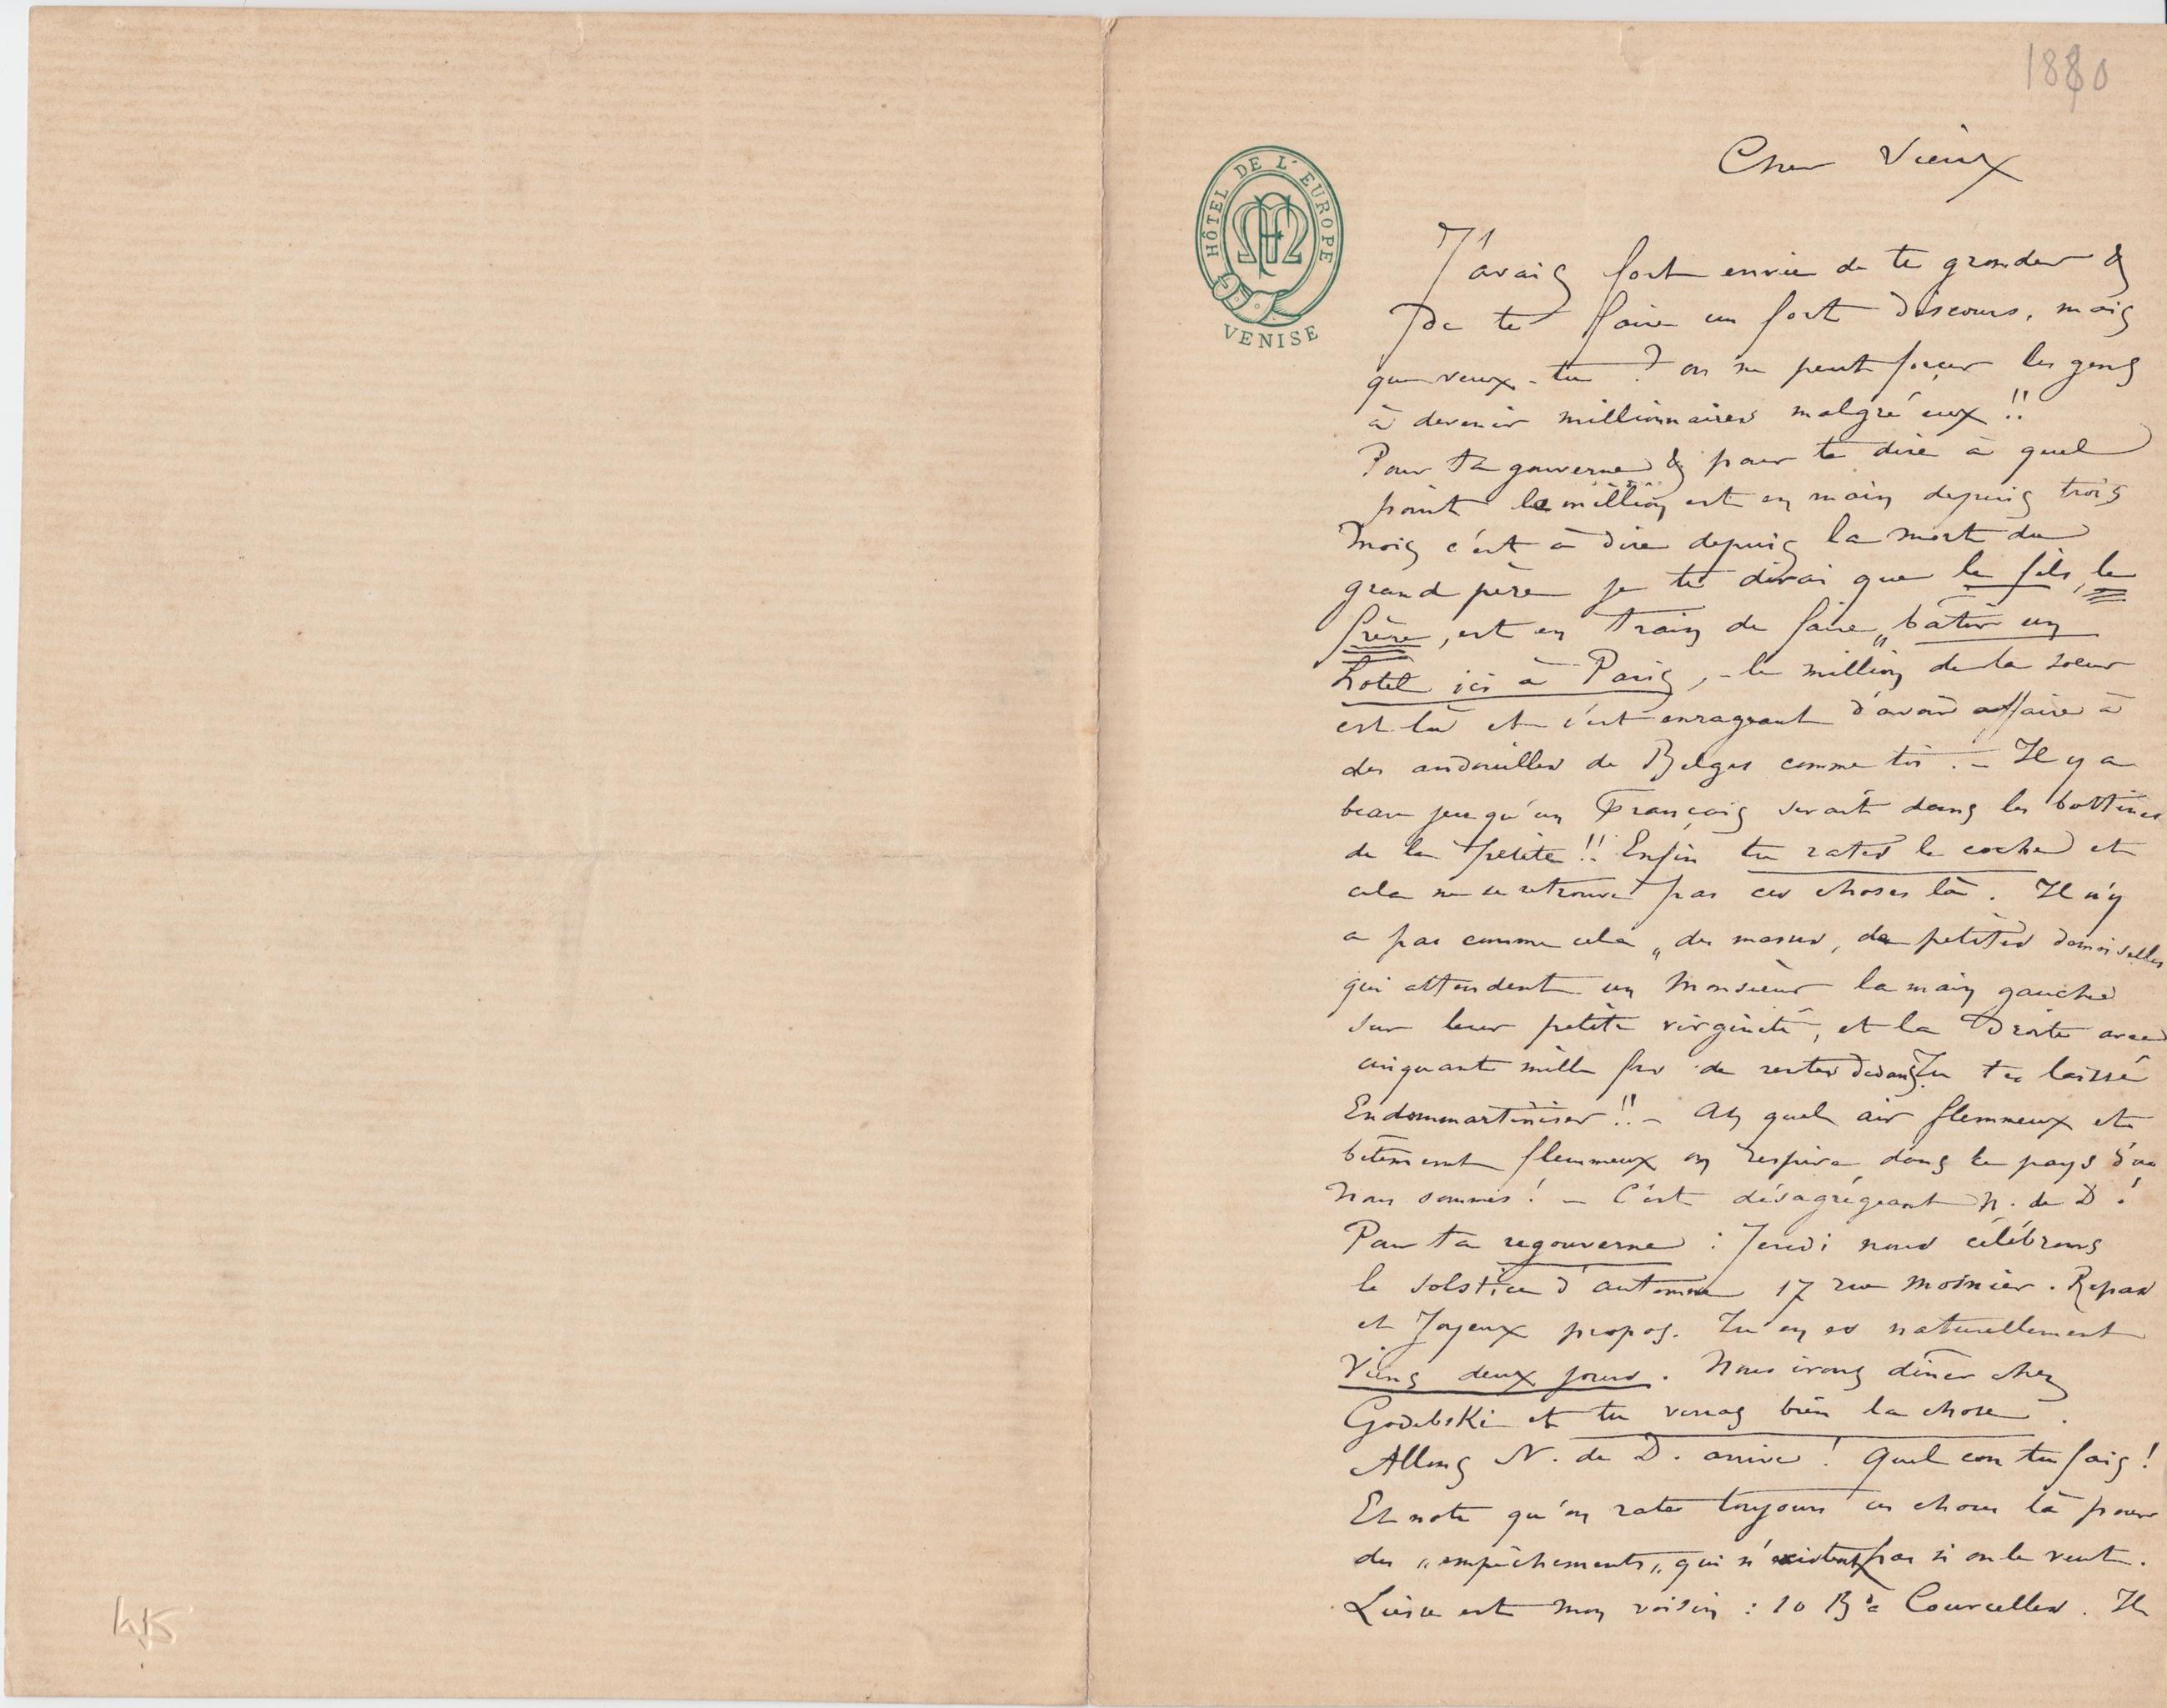 1880
HÔTEL DE L'EUROPE
VENISE
Cher Vieux
J'avais fort envie de te gronder &
de te faire un fort discours, mais
que veux-tu ? on ne peut forcer les gens
à devenir millionnaires malgré eux !!
Pour ta gouverne & pour te dire à quel
point le million est en main depuis trois
mois c'est à dire depuis la mort du
grand père je te dirai que le fils, le
frère, est en train de faire „bâtir un
hotel ici à Paris, - le million de la soeur
est là et c'est enrageant d'avoir affaire à
des andouilles de Belges comme toi. - Il y a
beau jeu qu'un Français serait dans les bottines
de la petite !! Enfin tu rates le coche et
cela ne se retrouve pas ces choses là. Il n'y
a pas comme cela „des masses, de petites demoiselles
qui attendent un Monsieur la main gauche
sur leur petite virginité, et la Droite avec
cinquante mille frs de rentes dedans. Tu te laisse
Endommartiniser !! - Ah quel air flemmeux et
bêtement flemmeux on respire dans le pays d'où
nous sommes ! - C'est désagrégeant N. de D !
Pour ta regouverne : Jeudi nous célébrons
le solstice d'automne 17 rue Mosnier. Repas
et Joyeux propos. Tu en es naturellement
Viens deux jours. Nous irons diner chez
Godebski et tu verras bien la chose.
Allons N. de D. arrive ! Quel con tu fais !
Et note qu'on rate toujours ces choses là pour
des „empêchements„ qui n'existent pas si on le veut.
Liesse est mon voisin : 10 Bd Courcelles. Il